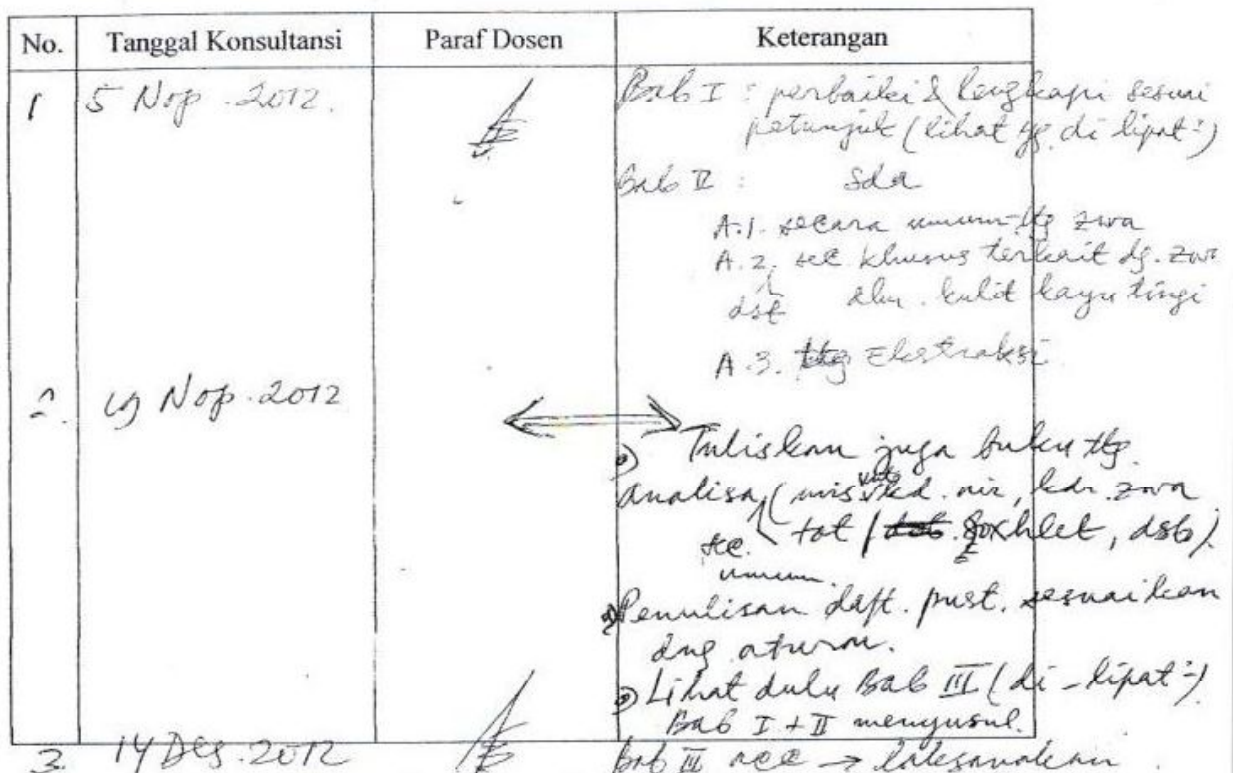 No. Tanggal Konsultansi Paraf Dosen Keterangan
1 5 Nop. 2012. Bab I : perbaiki & lengkapi sesuai
petunjuk (lihat yg. di lipat²)
Bab II : sda
A.1. secara umum ttg zwa
A.2. sec. khusus terkait dg. zwa
dst dlm. kulit kayu tingi
A.3. ttg Ekstraksi
2. 19 Nop. 2012
Tuliskan juga buku ttg.
analisa (mis. untk kd. air, kdr. zwa
tot / soxhlet, dsb).
sec.
umum.
Penulisan daft. pust. sesuaikan
dng aturan.
Lihat dulu Bab III (di-lipat²)
Bab I + II menyusul.
3. 14 Des. 2012 Bab III acc → laksanakan.